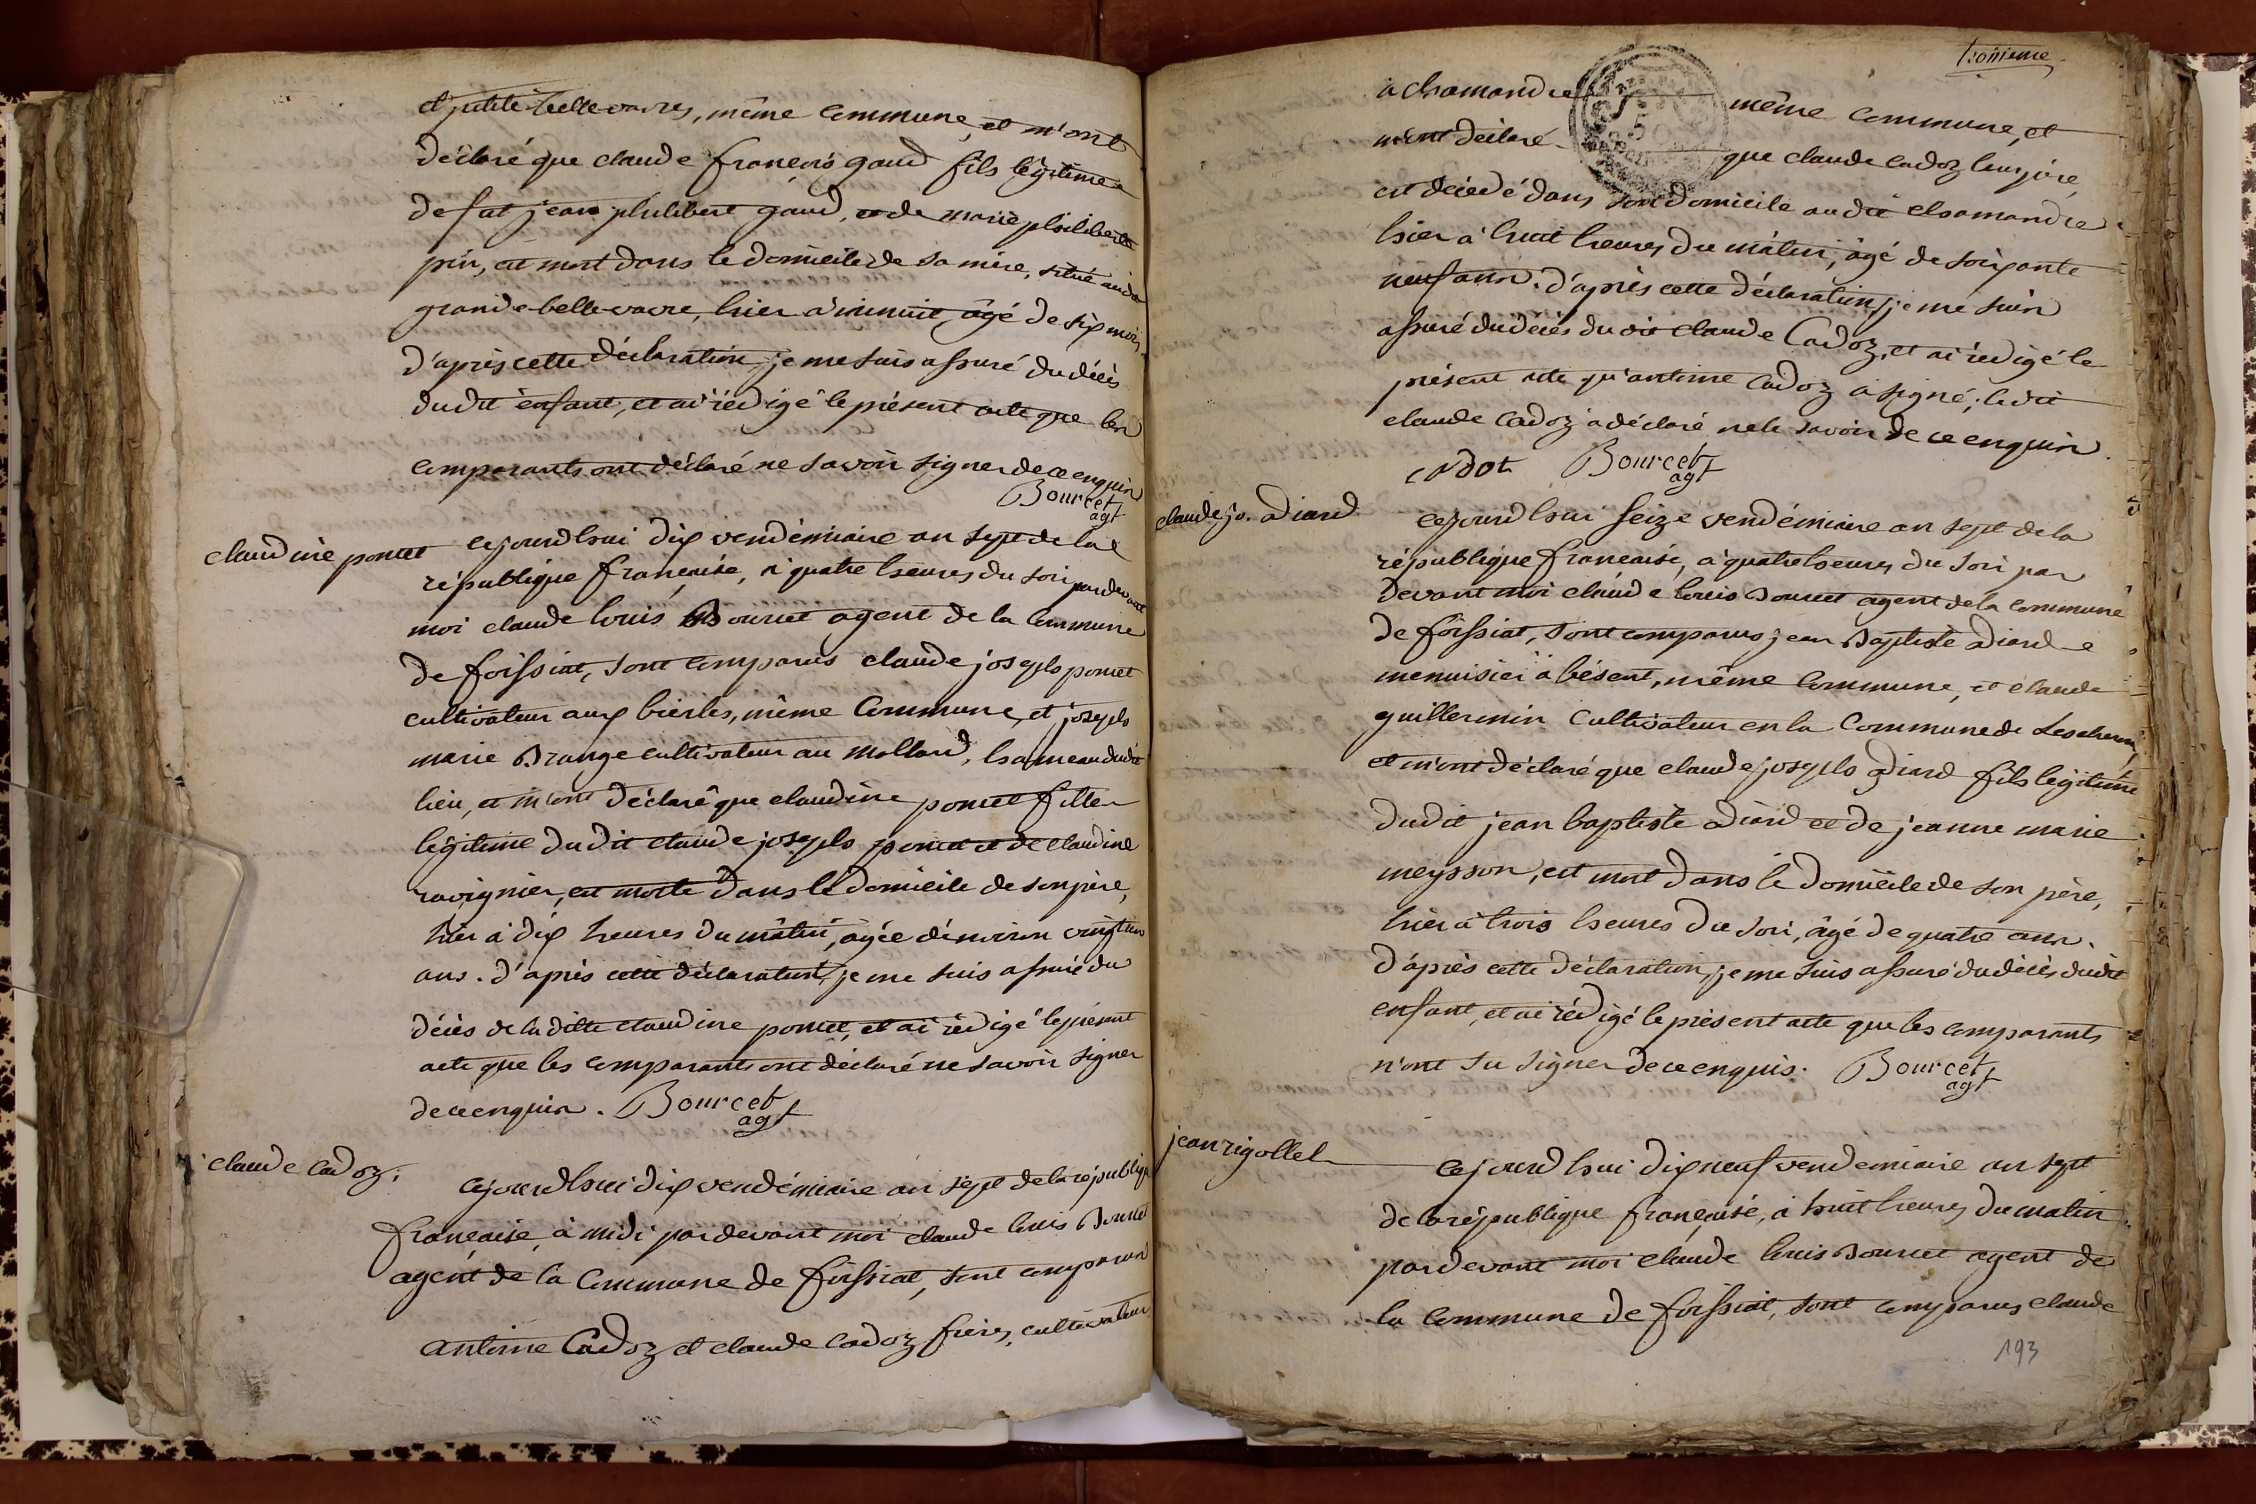 et petite bellevavres, même commune, et m'ont
déclaré que claude françois gaud fils légitime
de fut jean philibert gaud, et de marie philiberte
pin, est mort dans le domicile de sa mère, situé audit
grande-bellevavre, hier à minuit, âgé de six mois,
d'après cette déclaration, je me suis assuré du décès
dudit enfant, et ai rédigé le présent acte que les
comparants ont déclaré ne savoir signer de ce enquis
Bourcet
agt
claudine poncet
cejourd'hui dix vendémiaire an sept de la
république française, à quatre heures du soir pardevant
moi claude louis Bourcet agent de la commune
de foissiat, sont comparus claude joseph poncet
cultivateur aux bierles, même commune, et joseph
marie Brange cultivateur au mollard, hameau dudit
lieu, et m'ont déclaré que claudine poncet fille
légitime dudit claude joseph poncet et de claudine
ravignier, est morte dans le domicile de son père,
hier à dix heures du matin, âgée d'environ vingt un
ans. d'après cette déclaration, je me suis assuré du
décès de la ditte claudine poncet, et ai rédigé le présent
acte que les comparants ont déclaré ne savoir signer
de ce enquis. Bourcet
agt
claude cadoz.
cejourd'hui dix vendémiaire an sept de la république
française, à midi pardevant moi claude louis Bourcet
agent de la commune de foissiat, sont comparus
antoine Cadoz et claude cadoz frères, cultivateurs
troisieme
à chamandre même commune, et
m'ont déclaré que claude cadoz leur père
est décédé dans son domicile audit chamandre
hier à huit heures du matin, âgé de soixante
neuf ans. d'après cette déclaration, je me suis
assuré du décès dudit claude Cadoz, et ai rédigé le
présent acte qu'antoine cadoz a signé; ledit
claude cadoz a déclaré ne le savoir de ce enquis.
cadot Bourcet
agt
claude jo. adiard
cejourd'hui seize vendémiaire an sept de la
république française, à quatre heures du soir par
devant moi claude louis Bourcet agent de la commune
de foissiat, sont comparus jean Baptiste adiard
menuisier à bésent, même commune, et claude
guillermin cultivateur en la commune de Lescheroux,
et m'ont déclaré que claude joseph adiard fils légitime
dudit jean baptiste adiard et de jeanne marie
meysson, est mort dans le domicile de son père,
hier à trois heures du soir, âgé de quatre ans.
d'après cette déclaration, je me suis assuré du décès dudit
enfant, et ai rédigé le présent acte que les comparants
n'ont su signer de ce enquis. Bourcet
agt
jean rigollet
cejourd'hui dix neuf vendemiaire an sept
de la république française, à huit heures du matin
pardevant moi claude louis Bourcet agent de
la commune de foissiat, sont comparus claude
193